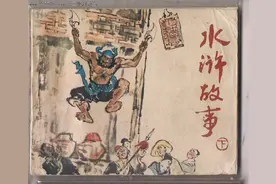 水浒故事
下